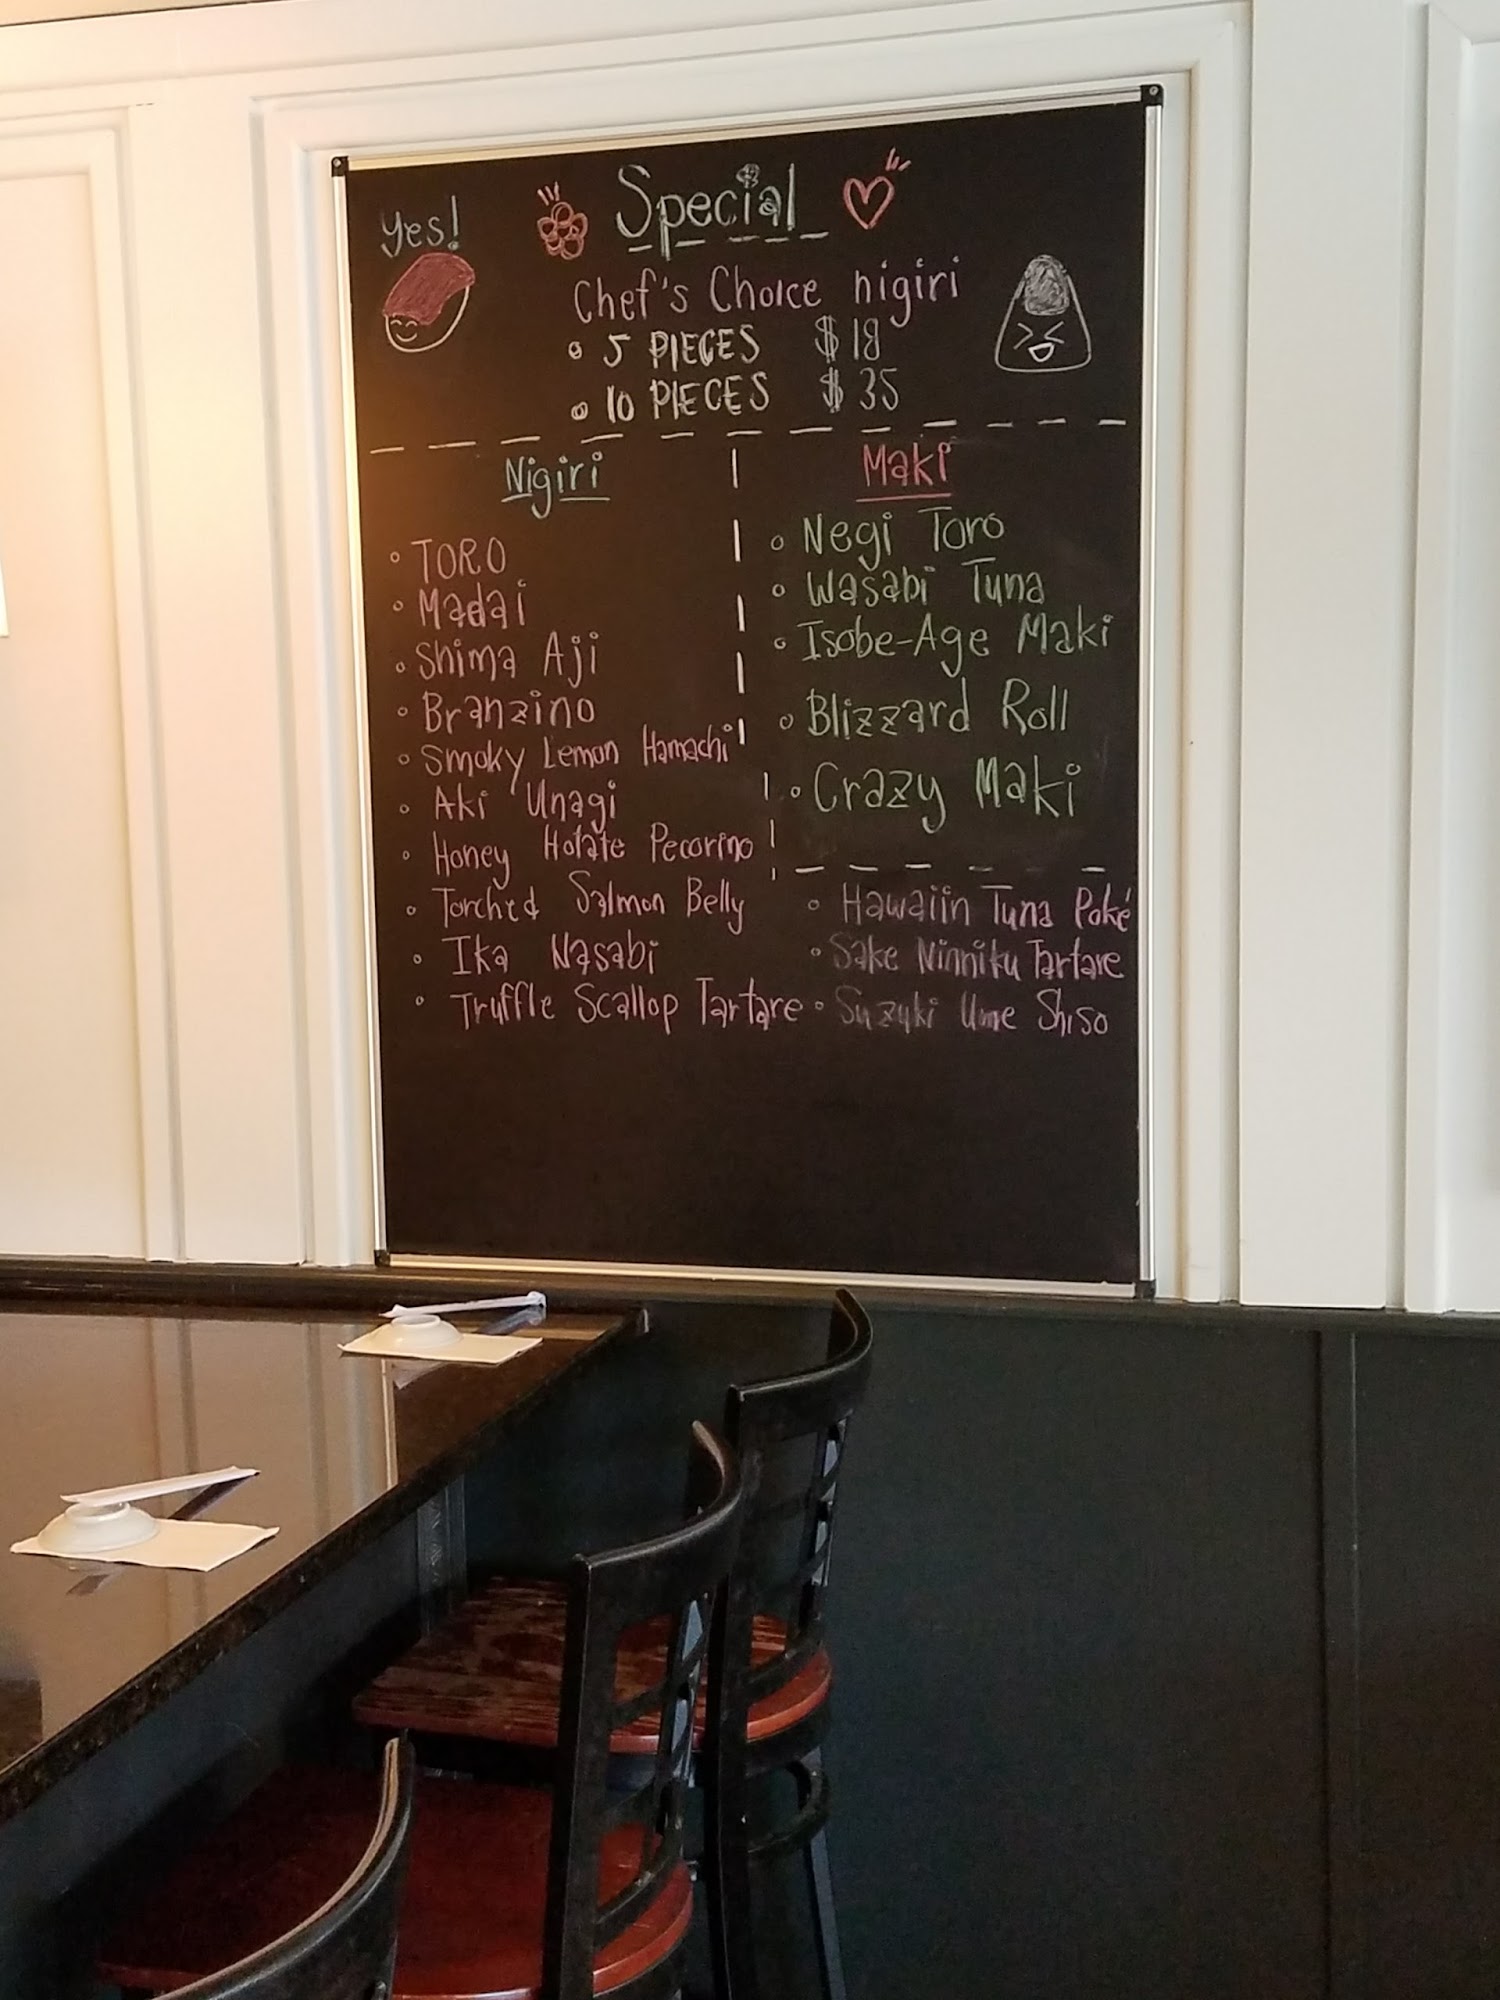 Yes!
Special
Chef's Choice nigiri
5 PIECES $18
10 PIECES $35
Nigiri
TORO
Madai
Shima Aji
Branzino
Smoky Lemon Hamachi
Aki Unagi
Honey Hotate Pecorino
Torched Salmon Belly
Ika Wasabi
Truffle Scallop Tartare
Maki
Negi Toro
Wasabi Tuna
Isobe-Age Maki
Blizzard Roll
Crazy Maki
Hawaiin Tuna Poké
Sake Ninniku Tartare
Suzuki Ume Shiso